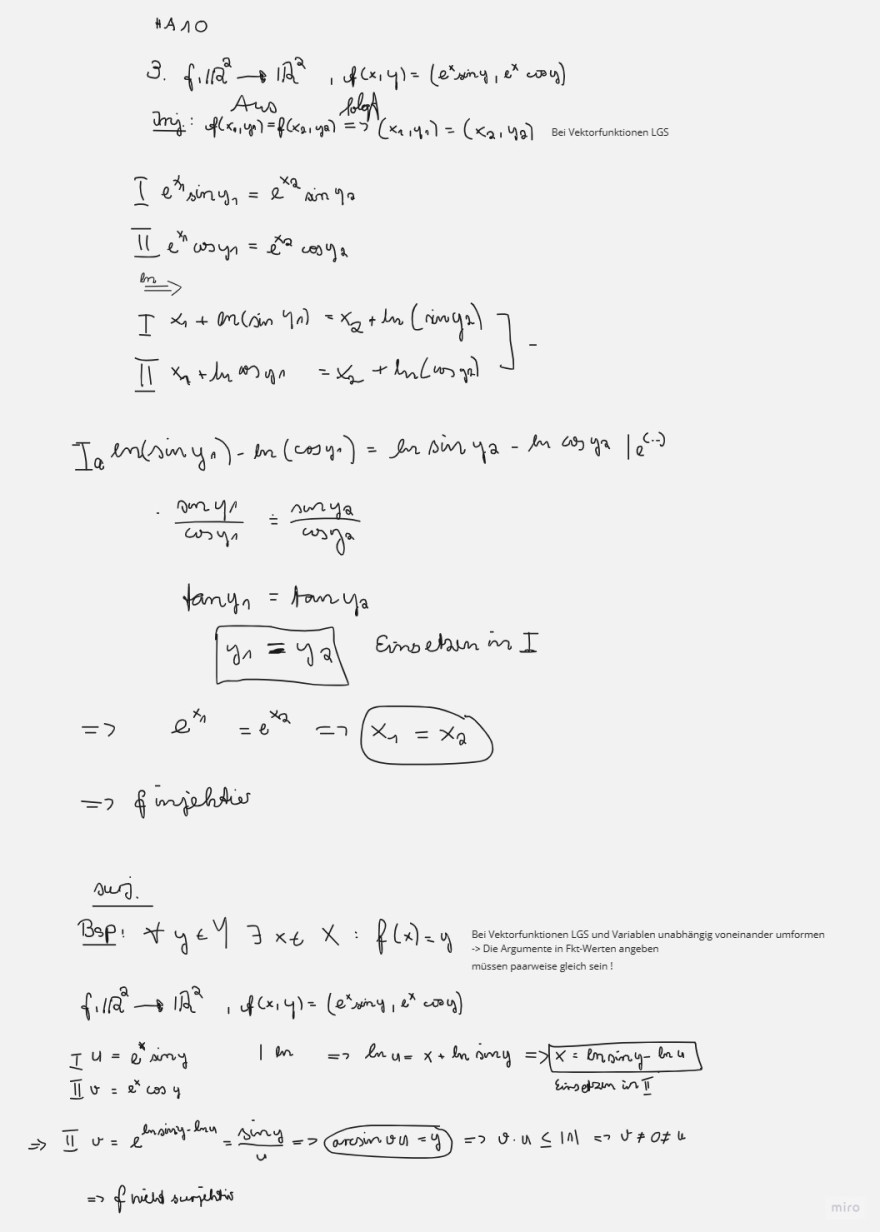 HA10
3. f: ℝ² → ℝ² , f(x,y) = (eˣ sin y, eˣ cos y)
Aus folgt
Inj: f(x₁,y₁) = f(x₂,y₂) => (x₁,y₁) = (x₂,y₂) Bei Vektorfunktionen LGS
I e^x₁ sin y₁ = e^x₂ sin y₂
II e^x₁ cos y₁ = e^x₂ cos y₂
ln =>
I x₁ + ln(sin y₁) = x₂ + ln(sin y₂)
II x₁ + ln cos y₁ = x₂ + ln(cos y₂) ] -
Iₐ ln(sin y₁) - ln(cos y₁) = ln sin y₂ - ln cos y₂ | e^(...)
sin y₁ / cos y₁ = sin y₂ / cos y₂
tan y₁ = tan y₂
y₁ = y₂ Einsetzen in I
=> e^x₁ = e^x₂ => x₁ = x₂
=> f injektiv
surj.
Bsp: ∀ y ∈ Y ∃ x ∈ X : f(x) = y Bei Vektorfunktionen LGS und Variablen unabhängig voneinander umformen
-> Die Argumente in Fkt-Werten angeben
müssen paarweise gleich sein !
f: ℝ² → ℝ² , f(x,y) = (eˣ sin y, eˣ cos y)
I u = eˣ sin y | ln => ln u = x + ln sin y => x = ln sin y - ln u
II v = eˣ cos y Einsetzen in II
=> II v = e^(ln sin y - ln u) = sin y / u => arcsin v u = y => v · u ≤ |1| => v ≠ 0 ≠ u
=> f nicht surjektiv
miro